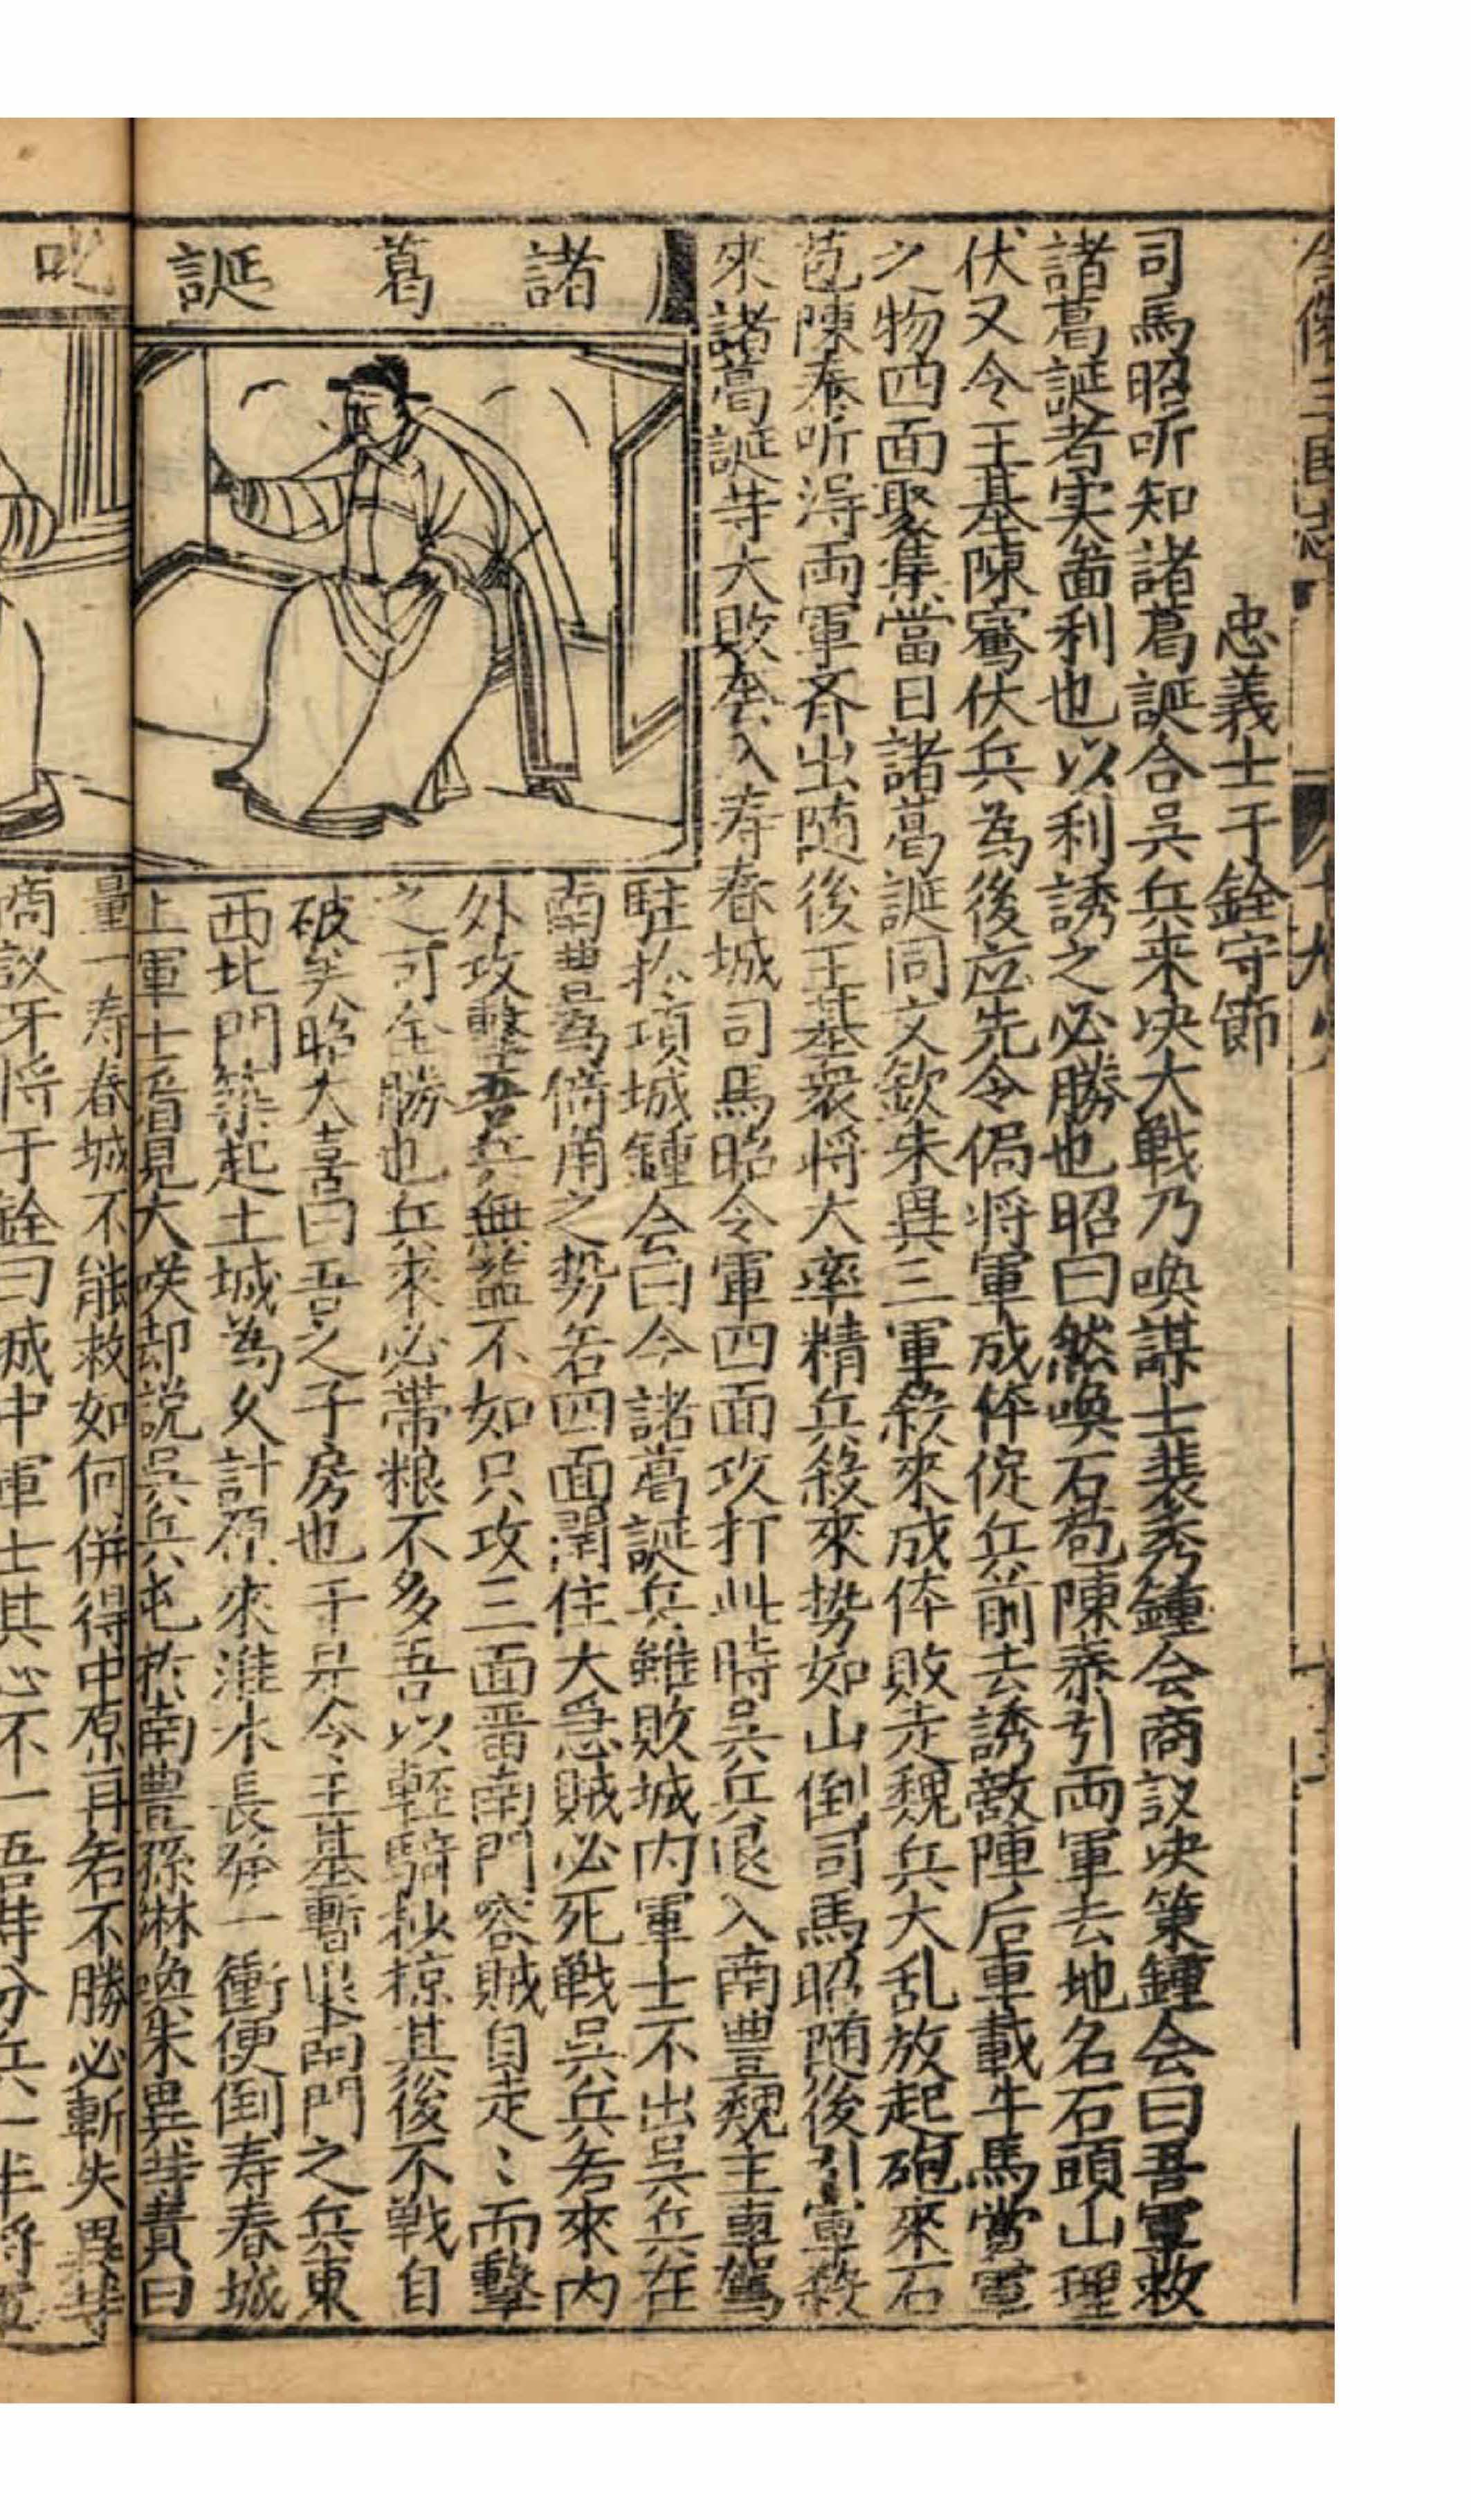 忠義士于銓守節
司馬昭听知諸葛誕合吳兵来决大戰乃喚謀士裴秀鍾会商议决策鍾会曰吾軍救
諸葛誕者实啚利也以利誘之必勝也昭曰然喚石苞陳泰引両軍去地名石頭山理
伏又令王基陳騫伏兵為後应先令偏将軍成倅㝎兵前去誘敵陣后車載牛馬賞軍
之物四面聚集當日諸葛誕同文欽朱異三軍殺來成倅敗走魏兵大乱放起砲來石
苞陳泰听淂両軍斉出随後王基衮将大率精兵殺來势如山倒司馬昭随後引軍殺
來諸葛誕䒭大敗奎入寿春城司馬昭令軍四面攻打此時吳兵退入南豊魏主車駕
諸葛誕
駐扵項城鍾会曰今諸葛誕兵雖敗城内軍士不出吳兵在
南豊為掎角之势若四面闈住大急賊必死戰吳兵若來内
外攻擊吾兵無益不如只攻三面畱南門容賊自走〻而擊
之可全勝也兵來必帶粮不多吾以輕騎抄掠其後不戰自
破矣昭大喜曰吾之子房也于是令王基暫退南門之兵東
西北門築起土城為久計原來淮水長發一衝便倒寿春城
上軍士看見大咲却説吳兵屯扵南豊孫綝喚朱異䒭責曰
量一寿春城不能救如何併得中原再若不勝必斬朱異䒭
商议牙将于銓曰城中軍士其心不一吾䒭分兵一半将軍